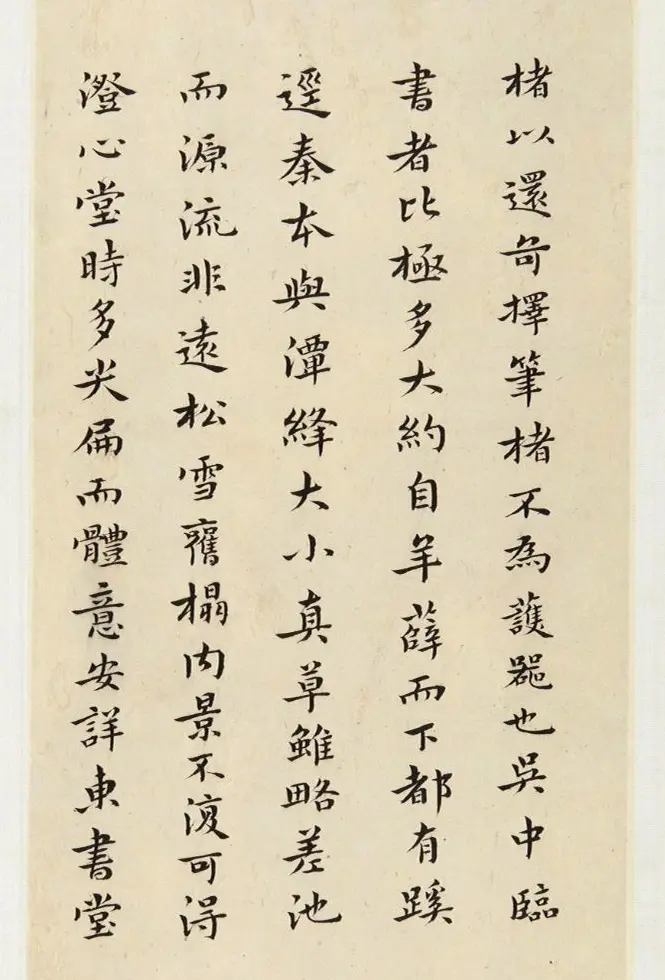 楮以還擇筆楮不為護噐也吳中臨
書者比極多大約自羊薛而下都有蹊
逕秦本與潭絳大小真草雖略差池
而源流非遠松雪舊榻內景不復可得
澄心堂時多尖扁而體意安詳東書堂